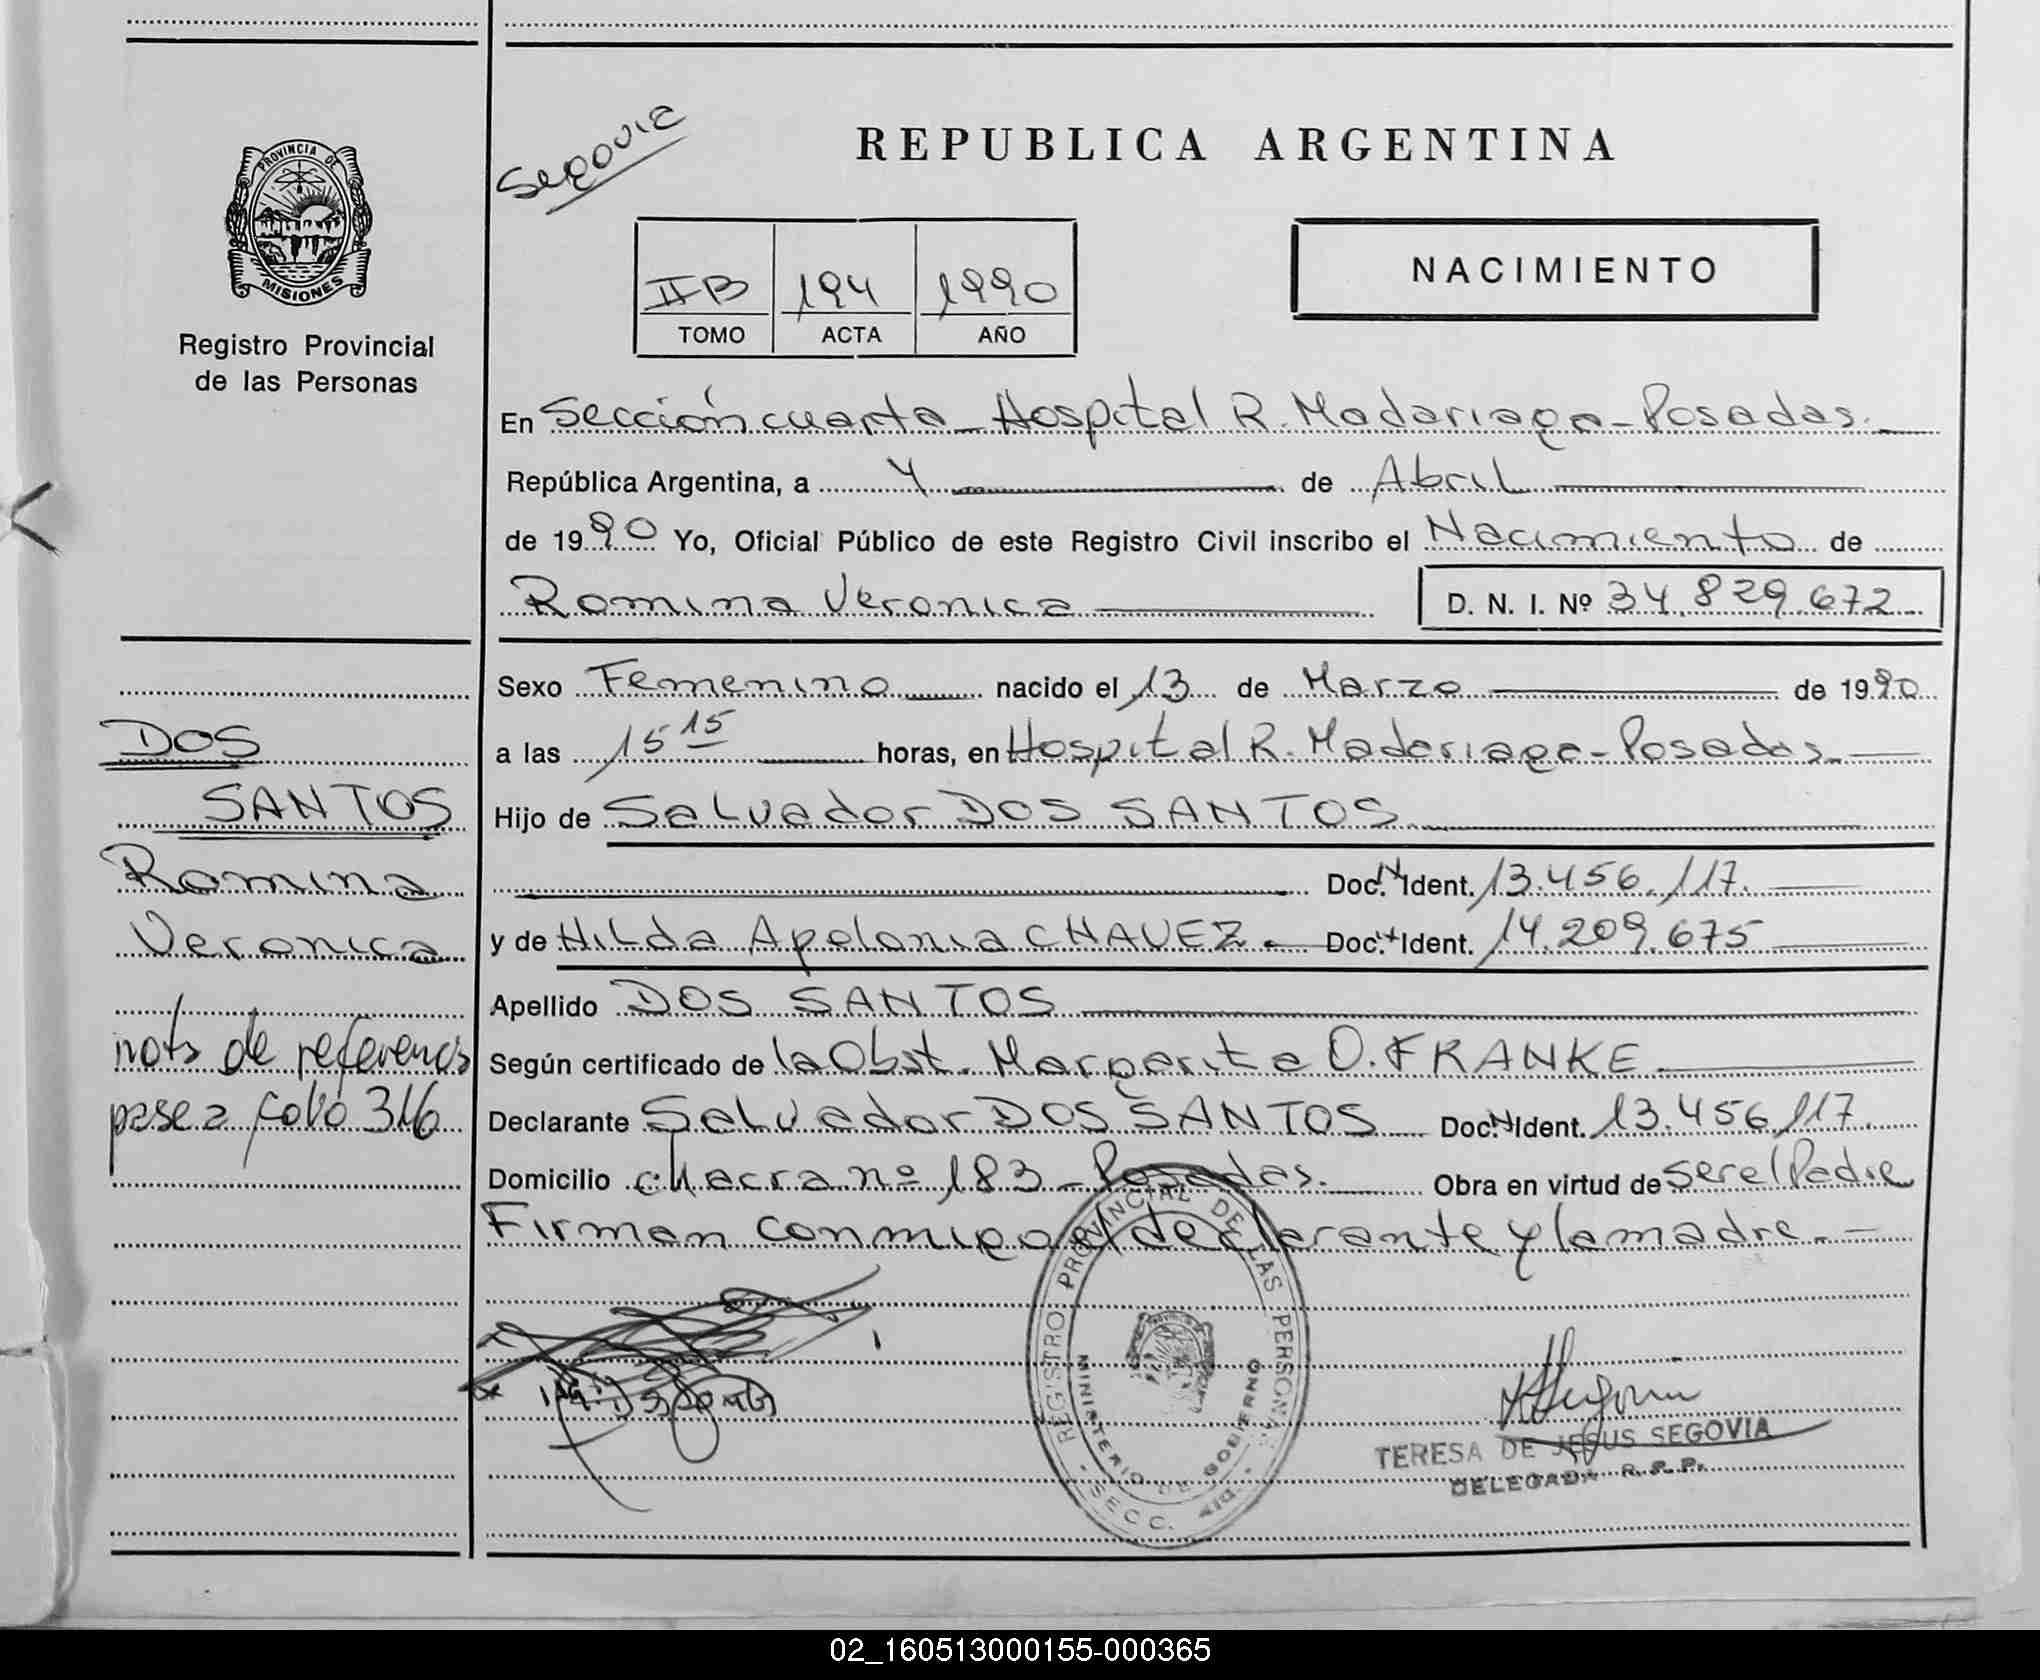 Segovia
REPUBLICA ARGENTINA
PROVINCIA DE
MISIONES
Registro Provincial
de las Personas
II B 194 1990
TOMO ACTA AÑO
NACIMIENTO
En Sección cuarta - Hospital R. Madariaga - Posadas.
República Argentina, a 4 de Abril
de 1990 Yo, Oficial Público de este Registro Civil inscribo el Nacimiento de
Romina Veronica D. N. I. Nº 34.829.672
Sexo Femenino nacido el 13 de Marzo de 1990
a las 15 15 horas, en Hospital R. Madariaga - Posadas.
Hijo de Salvador DOS SANTOS
Doc. N Ident. 13.456.117.
y de Hilda Apolonia CHAVEZ. Doc. Ident. 14.209.675
Apellido DOS SANTOS
Según certificado de la Obst. Margarita O. FRANKE
Declarante Salvador DOS SANTOS Doc. N Ident. 13.456.117.
Domicilio chacra nº 183 - Posadas. Obra en virtud de ser el Padre
Firman conmigo el declarante y la madre. -
DOS
SANTOS
Romina
Veronica
nota de referencia
pase a folio 316
REGISTRO PROVINCIAL DE LAS PERSONAS
MINISTERIO GOBIERNO
SECC.
TERESA DE JESUS SEGOVIA
DELEGADA R. P. P.
02_160513000155-000365